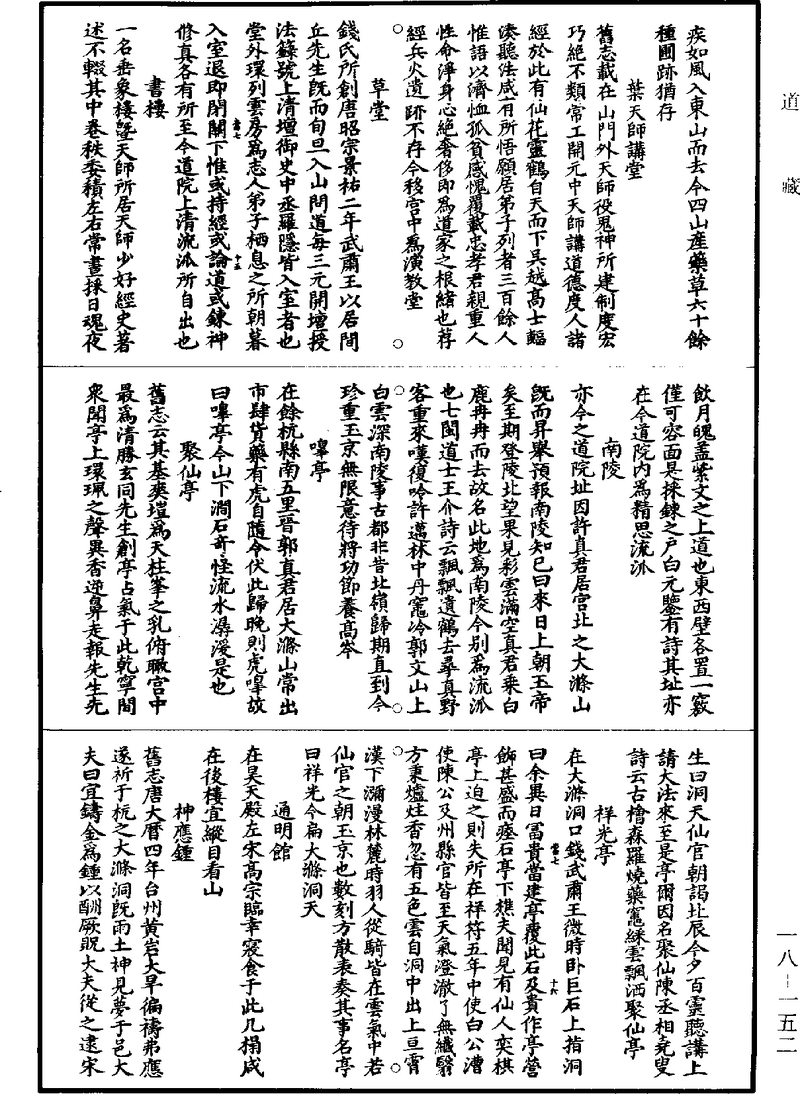 道藏
疾如風入東山而去今四山產藥草六十餘
種圃跡猶存
葉天師講堂
舊志載在山門外天師役鬼神所建制度宏
巧絕不類常工開元中天師講道德度人諸
經於此有仙花靈鶴自天而下具越高士輻
湊聽法咸有所悟願居弟子列者三百餘人
惟語以濟恤孤貧感愧覆載忠孝君親重人
性命淨身心絕奢侈即為道家之根緒也荐
經兵火遺跡不存今移宮中為演教堂
草堂
錢氏所創唐昭宗景祐二年武肅王以居閭
丘先生既而旬旦入山問道每三元開壇授
法籙號上清壇御史中丞羅隱皆入室者也
堂外環列雲房為志人弟子栖息之所朝暮
入室退即閉關下惟或持經或論道或鍊神
脩真各有所至今道院上清流派所自出也
書樓
一名垂象樓暨天師所居天師少好經史著
述不輟其中卷秩委積左右常晝採日魂夜
飲月魄蓋紫文之上道也東西壁各置一竅
僅可容面是採鍊之戶白元鑒有詩其址亦
在今道院內為精思流派
南陵
亦今之道院址因許真君居宮北之大滌山
既而昇舉預報南陵知已曰來日上朝玉帝
矣至期登陵北望果見彩雲滿空真君乘白
鹿冉冉而去故名此地為南陵今別為流派
也七閩道士王介詩云飄飄遺鶴去尋真野
客重來嘆復吟許邁林中丹竈冷郭文山上
白雲深南陵事古都非昔北嶺歸期直到今
珍重玉京無限意待將功節養高岑
嘷亭
在餘杭縣南五里晉郭真君居大滌山常出
市肆貨藥有虎自隨令伏此歸晚則虎嘷故
曰嘷亭今山下澗石奇怪流水潺湲是也
聚仙亭
舊志云其基爽塏為天柱峯之乳俯瞰宮中
最為清勝玄同先生創亭占氣于此乾寧間
衆聞亭上環珮之聲異香迎鼻走報先生先
生曰洞天仙官朝謁北辰今夕百靈聽講上
請大法來至是亭爾因名聚仙陳丞相堯叟
詩云古檜森羅燒藥竈綵雲飄洒聚仙亭
祥光亭
在大滌洞口錢武肅王微時臥巨石上指洞
曰余異日冨貴當建亭覆此石及貴作亭營
飾甚盛而瘞石亭下樵夫聞見有仙人奕棋
亭上迫之則失所在祥符五年中使白公漕
使陳公及州縣官皆至天氣澄澈了無纖翳
方秉爐炷香忽有五色雲自洞中出上亘霄
漢下瀰漫林麓時羽人從騎皆在雲氣中若
仙官之朝玉京也數刻方散表奏其事名亭
曰祥光今扁大滌洞天
通明館
在昊天殿左宋髙宗臨幸寢食于此几榻咸
在後樓宜縱目看山
神應鍾
舊志唐大曆四年台州黃岩大旱徧禱弗應
遂祈于杭之大滌洞既雨土神見夢于邑大
夫曰宜鑄金為鍾以酬厥貺大夫從之逮宋
一八–一五二